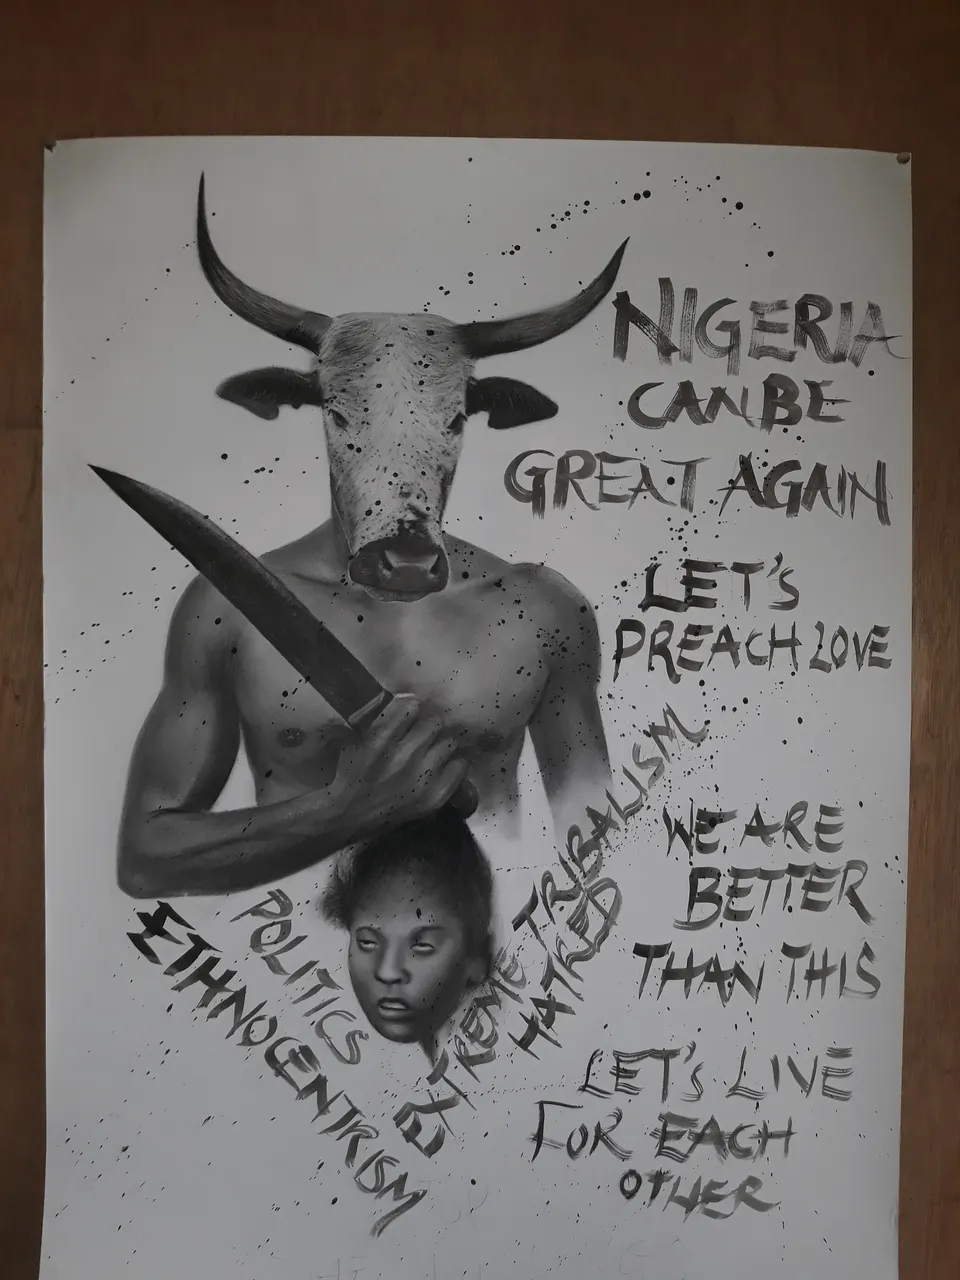 NIGERIA
CAN BE
GREAT AGAIN
LET'S
PREACH LOVE
WE ARE
BETTER
THAN THIS
LET'S LIVE
FOR EACH
OTHER
POLITICS
ETHNOCENTRISM
EXTREME TRIBALISM
HATRED